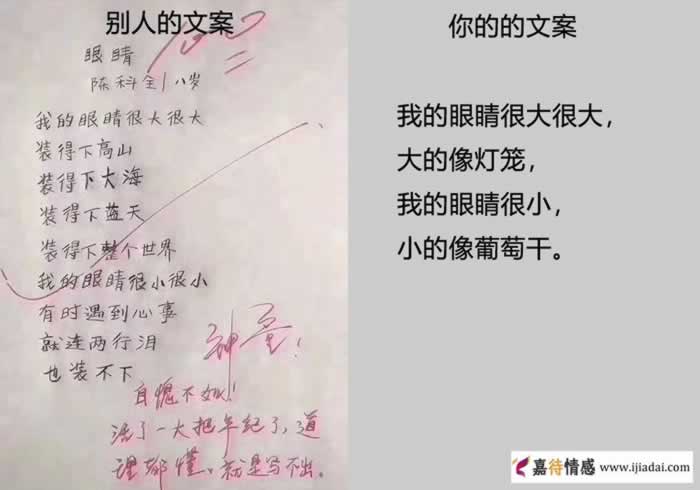 别人的文案
眼睛
陈科全 八岁
我的眼睛很大很大
装得下高山
装得下大海
装得下蓝天
装得下整个世界
我的眼睛很小很小
有时遇到心事
就连两行泪
也装不下
100
神童!
自愧不如!
活了一大把年纪了,道
理都懂、就是写不出。
你的的文案
我的眼睛很大很大,
大的像灯笼,
我的眼睛很小,
小的像葡萄干。
嘉待情感
www.ijiadai.com